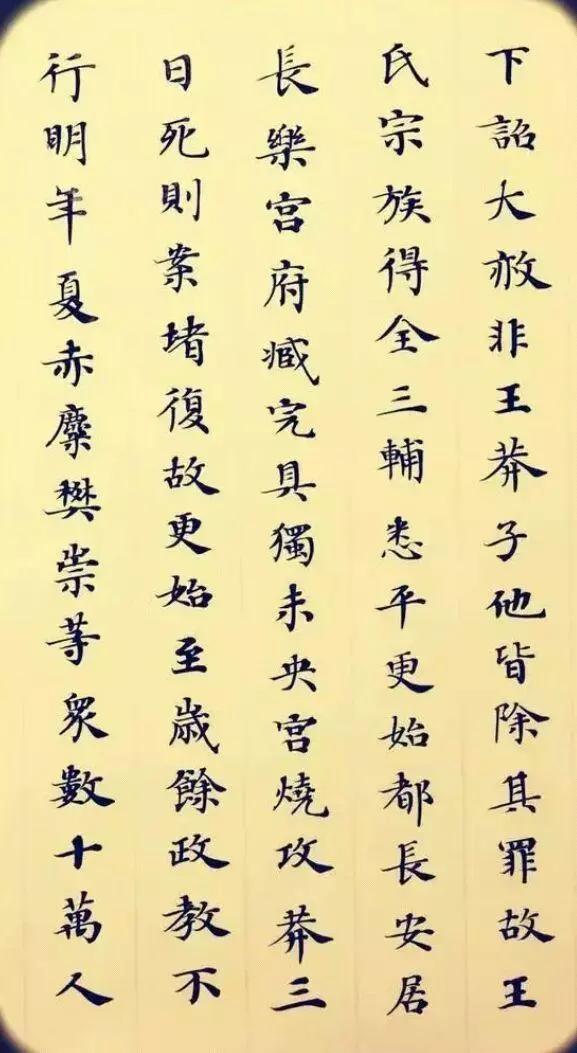 下詔大赦非王莽子他皆除其罪故王
氏宗族得全三輔悉平更始都長安居
長樂宮府臧完具獨未央宮燒攻莽三
日死則案堵復故更始至歲餘政教不
行明年夏赤麋樊崇等眾數十萬人